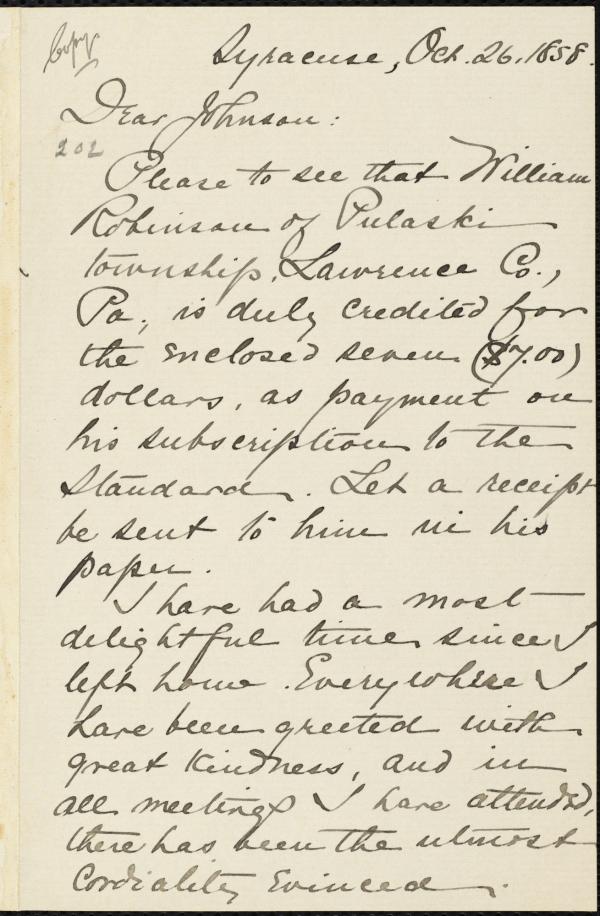 Copy
Syracuse, Oct. 26, 1858.
Dear Johnson:
202
Please to see that William
Robinson of Pulaski
township, Lawrence Co.,
Pa., is duly credited for
the enclosed seven ($7.00)
dollars, as payment on
his subscription to the
Standard. Let a receipt
be sent to him in his
paper.
I have had a most
delightful time since I
left home. Everywhere I
have been greeted with
great kindness, and in
all meetings I have attended,
there has been the utmost
cordiality evinced.